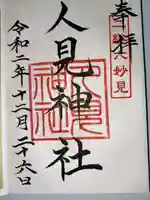 奉拝
妙見
人見神社
令和二年十二月二十六日